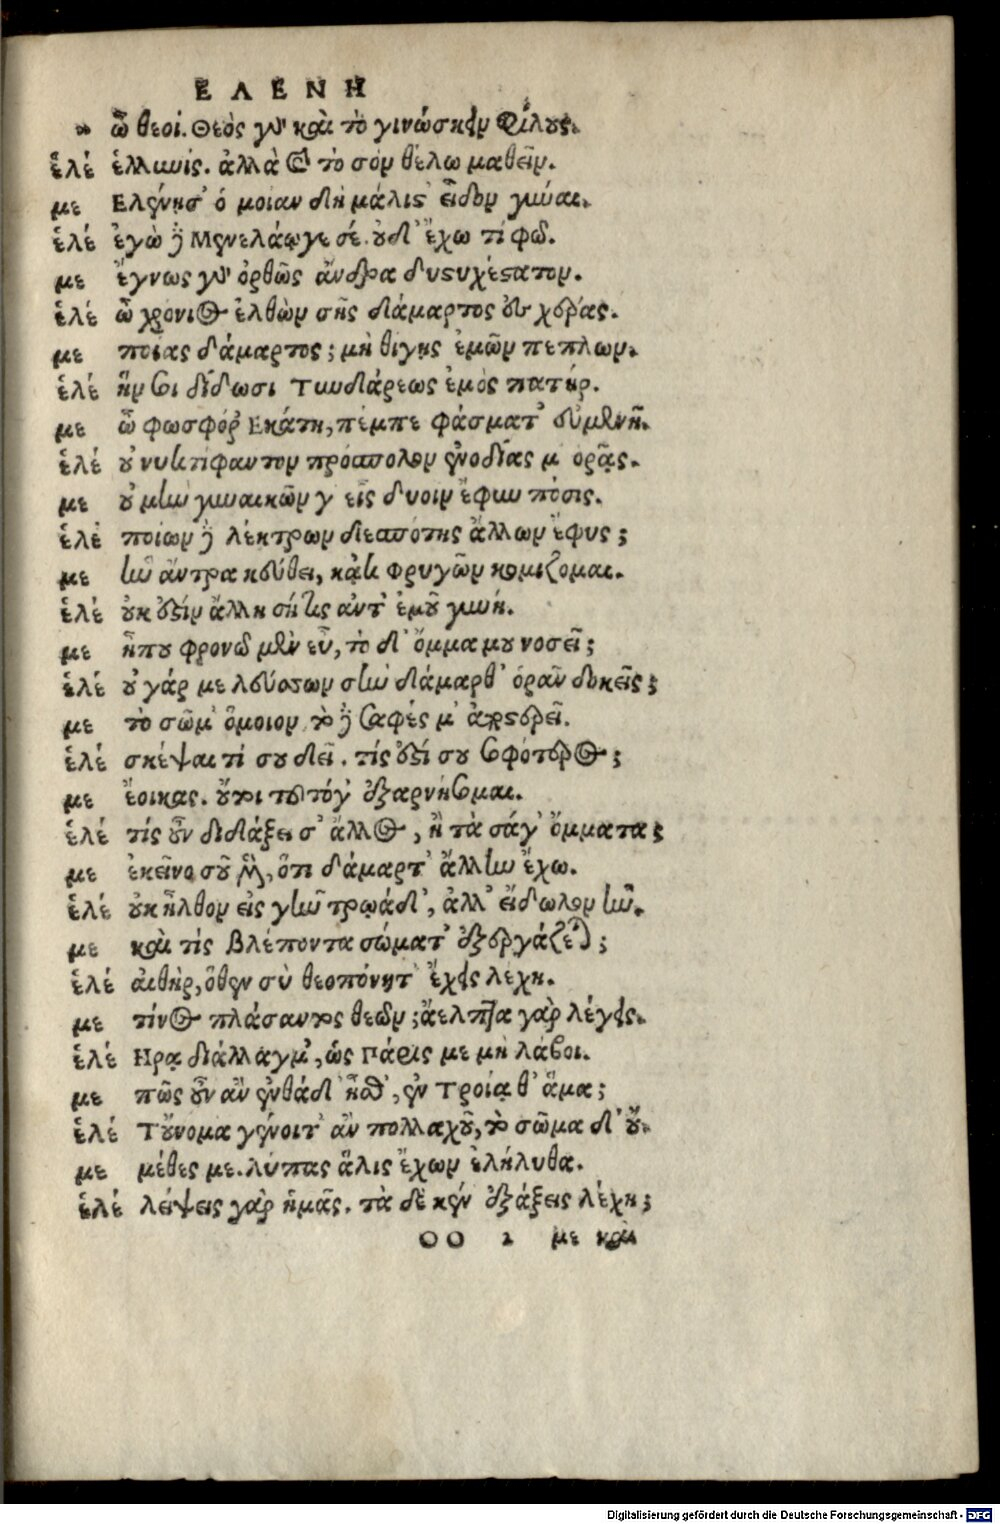 ΕΛΕΝΗ
ὦ θεοί. Θεὸς γὰρ καὶ τὸ γινώσκειν φίλους.
ἑλέ ἑλληνίς. ἀλλὰ καὶ τὸ σὸν θέλω μαθεῖν.
με Ελένης' ὁμοίαν δὴ μάλιστ' εἶδον γύναι.
ἑλέ ἐγὼ δὲ Μενελάῳ γε σέ. οὐδ' ἔχω τί φῶ.
με ἔγνως γὰρ ὀρθῶς ἄνδρα δυστυχέστατον.
ἑλέ ὦ χρόνιος ἐλθὼν σῆς δάμαρτος ἐς χέρας.
με ποίας δάμαρτος; μὴ θίγῃς ἐμῶν πεπλων.
ἑλέ ἥν σοι δίδωσι Τυνδάρεως ἐμὸς πατήρ.
με ὦ φωσφόρ' Εκάτη, πέμπε φάσματ' εὐμενῆ.
ἑλέ οὐ νυκτίφαντον πρόσπολον ἐνοδίας μ' ὁρᾷς.
με οὐ μὴν γυναικῶν γ' εἷς δυοῖν ἔφυν πόσις.
ἑλέ ποίων δὲ λέκτρων δεσπότης ἄλλων ἔφυς;
με ἣν ἄντρα κεύθει, κἀκ Φρυγῶν κομίζομαι.
ἑλέ οὐκ ἔστιν ἄλλη σή τις ἀντ' ἐμοῦ γυνή.
με ἦπου φρονῶ μὲν εὖ, τὸ δ' ὄμμα μου νοσεῖ;
ἑλέ οὐ γάρ με λεύσσων σὴν δάμαρθ' ὁρᾶν δοκεῖς;
με τὸ σῶμ' ὅμοιον, τὸ δὲ σαφές μ' ἀποστερεῖ.
ἑλέ σκέψαι τί σου δεῖ. τίς ἐστί σου σοφώτερος;
με ἔοικας. οὔτοι τοῦτό γ' ἐξαρνήσομαι.
ἑλέ τίς οὖν διδάξει σ' ἄλλος, ἢ τὰ σάγ' ὄμματα;
με ἐκεῖνο σοῦμεν, ὅτι δάμαρτ' ἄλλην ἔχω.
ἑλέ οὐκ ἦλθον εἰς γῆν τρῳάδ', ἀλλ' εἴδωλον ἦν.
με καὶ τίς βλέποντα σώματ' ἐξεργάζεται;
ἑλέ αἰθὴρ, ὅθεν σὺ θεοπόνητ' ἔχεις λέχη.
με τίνος πλάσαντος θεῶν; ἄελπτα γὰρ λέγεις.
ἑλέ Ηρα διάλλαγμ', ὡς Πάρις με μὴ λάβοι.
με πῶς οὖν ἂν ἐνθάδ' ἦσθ', ἐν Τροίᾳ θ' ἅμα;
ἑλέ Τοὔνομα γένοιτ' ἂν πολλαχοῦ, τὸ σῶμα δ' οὔ.
με μέθες με. λύπας ἅλις ἔχων ἐλήλυθα.
ἑλέ λείψεις γὰρ ἡμᾶς. τὰ δὲ κέν' ἐξάξεις λέχη;
OO 2 με καὶ
Digitalisierung gefördert durch die Deutsche Forschungsgemeinschaft - DFG